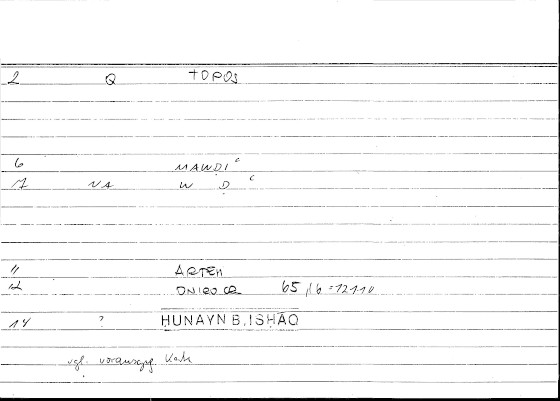 2 Q TOPOS
6 MAWDIʿ
7 NA W Ḍ ʿ
11 ARTEM
12 ONIROCR 65,16 = 121,10
14 ? ḤUNAYN B. ISḤĀQ
vgl. vorausgeg. Karte